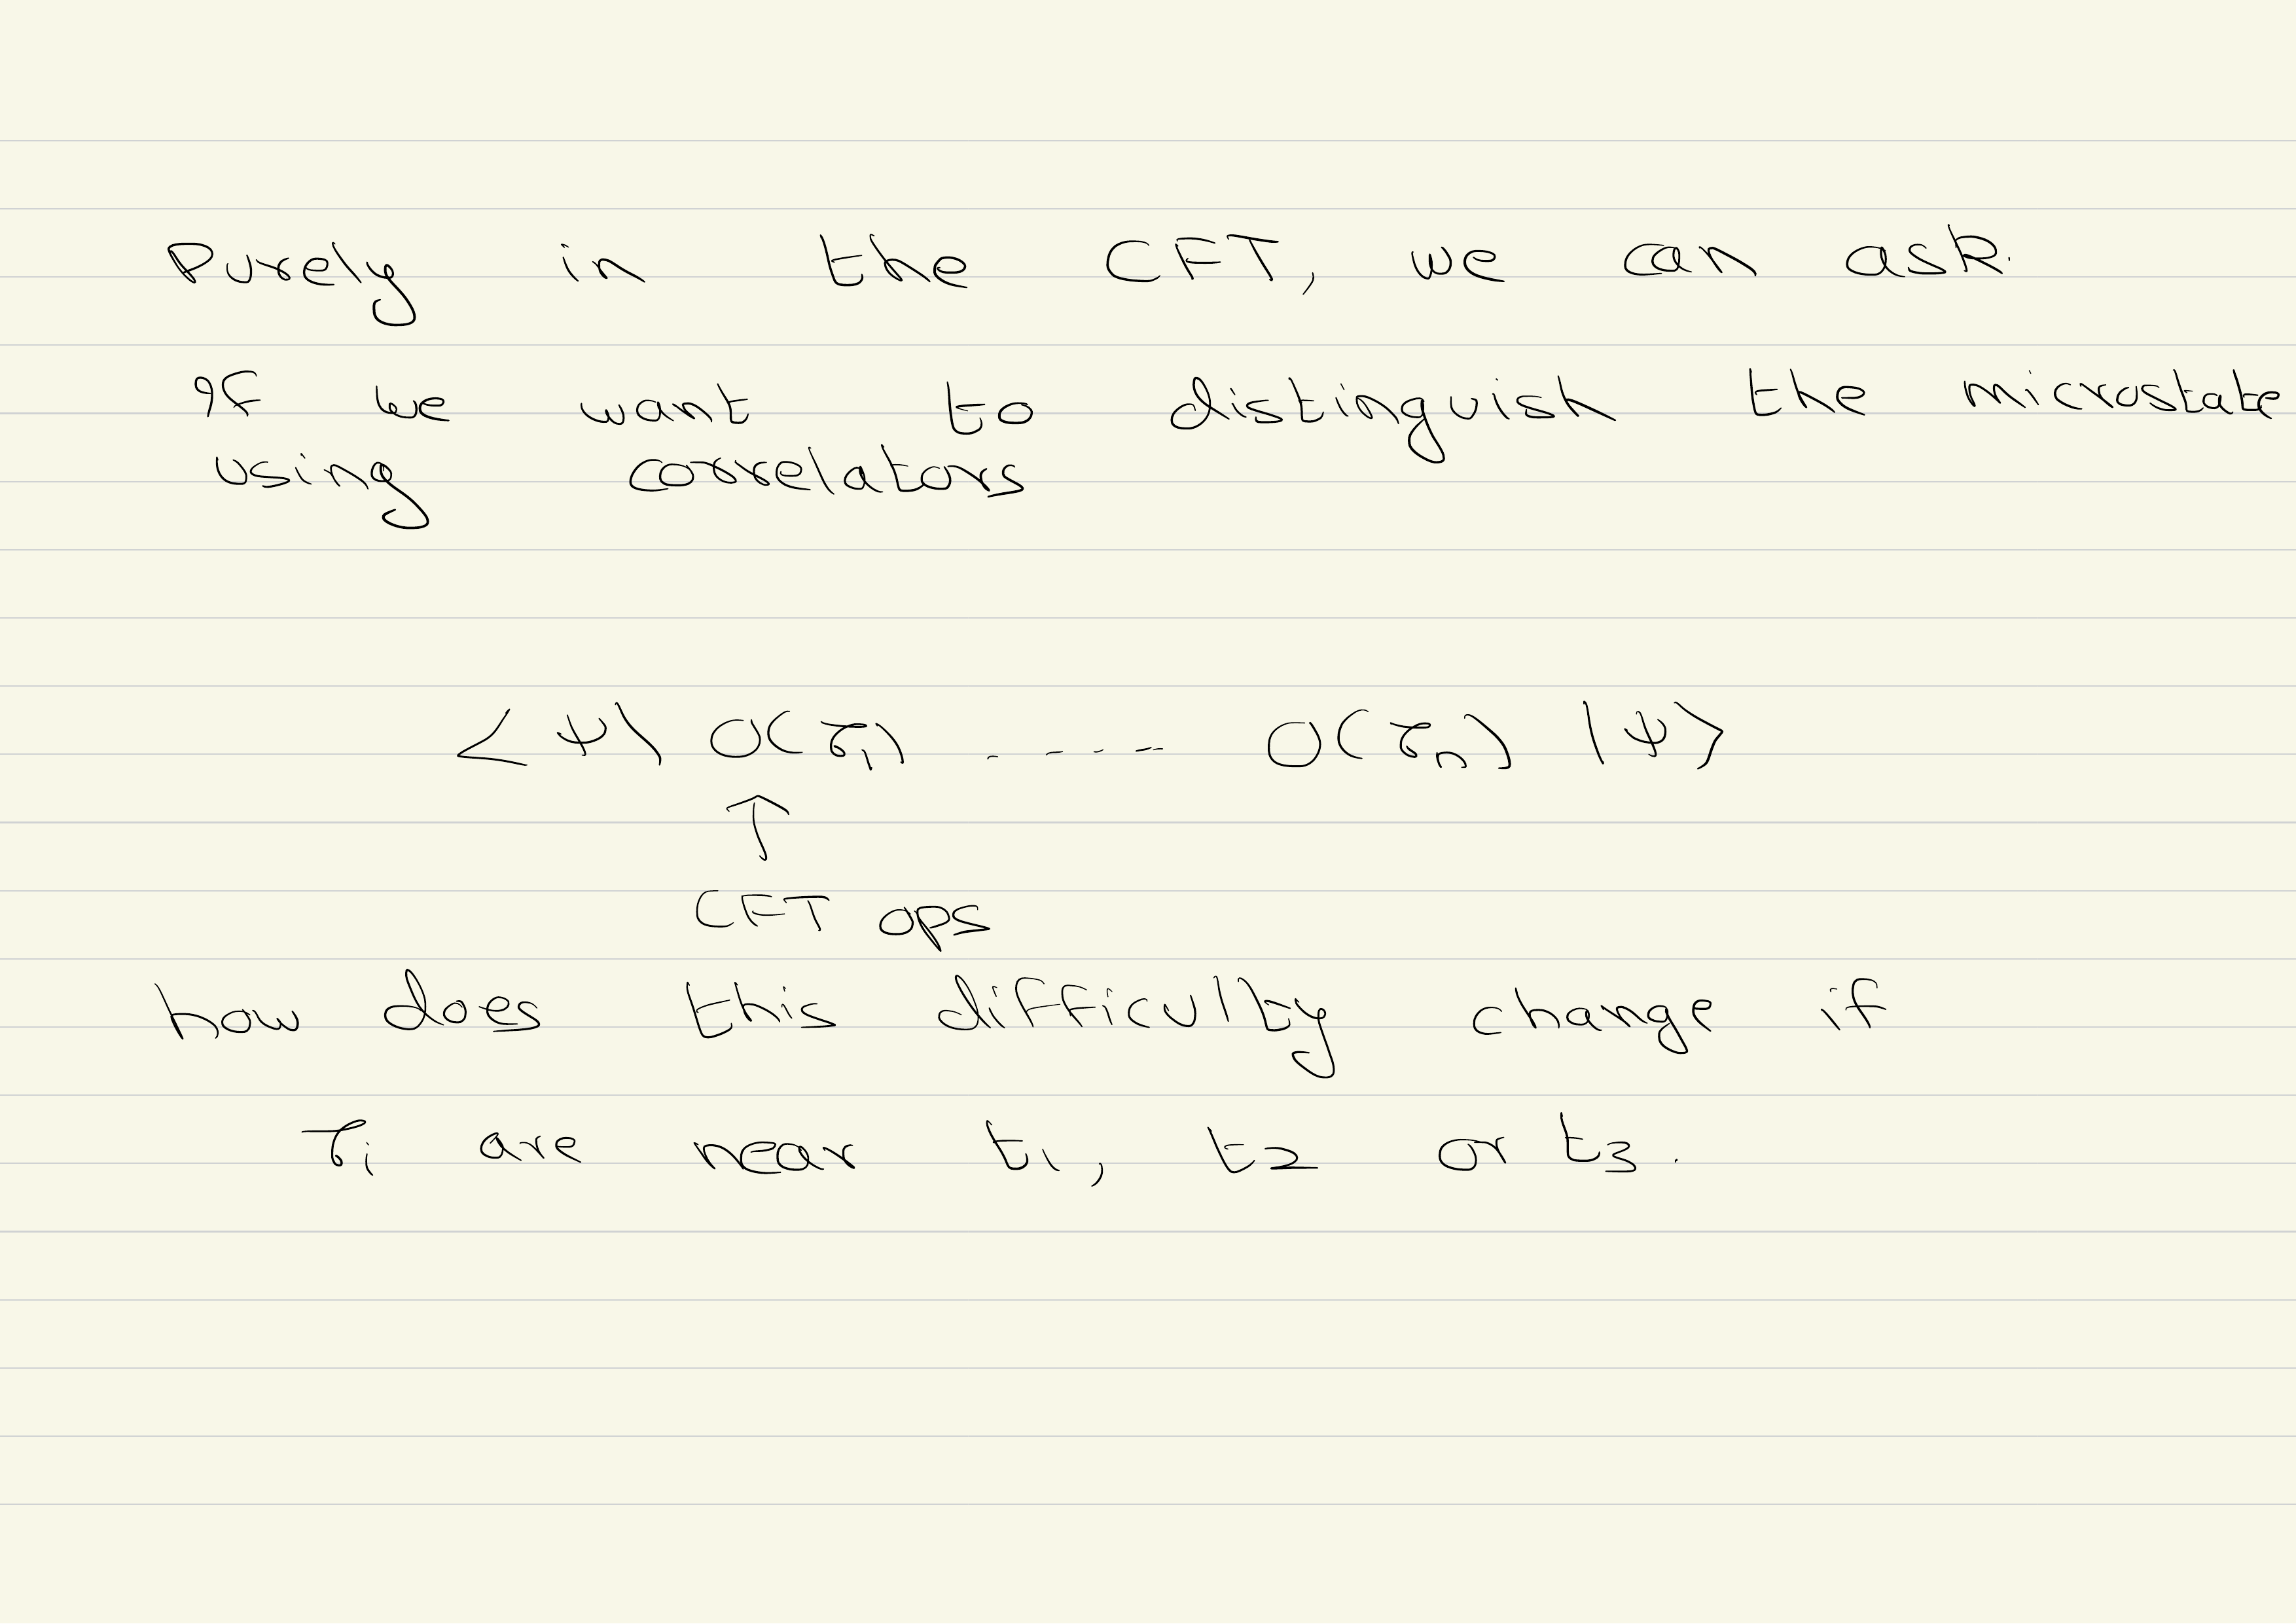 Purely in the CFT, we can ask.
If we want to distinguish the microstate
using correlators
<ψ| O(τ₁) ..... O(τₙ) |ψ>
↑
CFT ops
how does this difficulty change if
τᵢ are near t₁, t₂ or t₃.